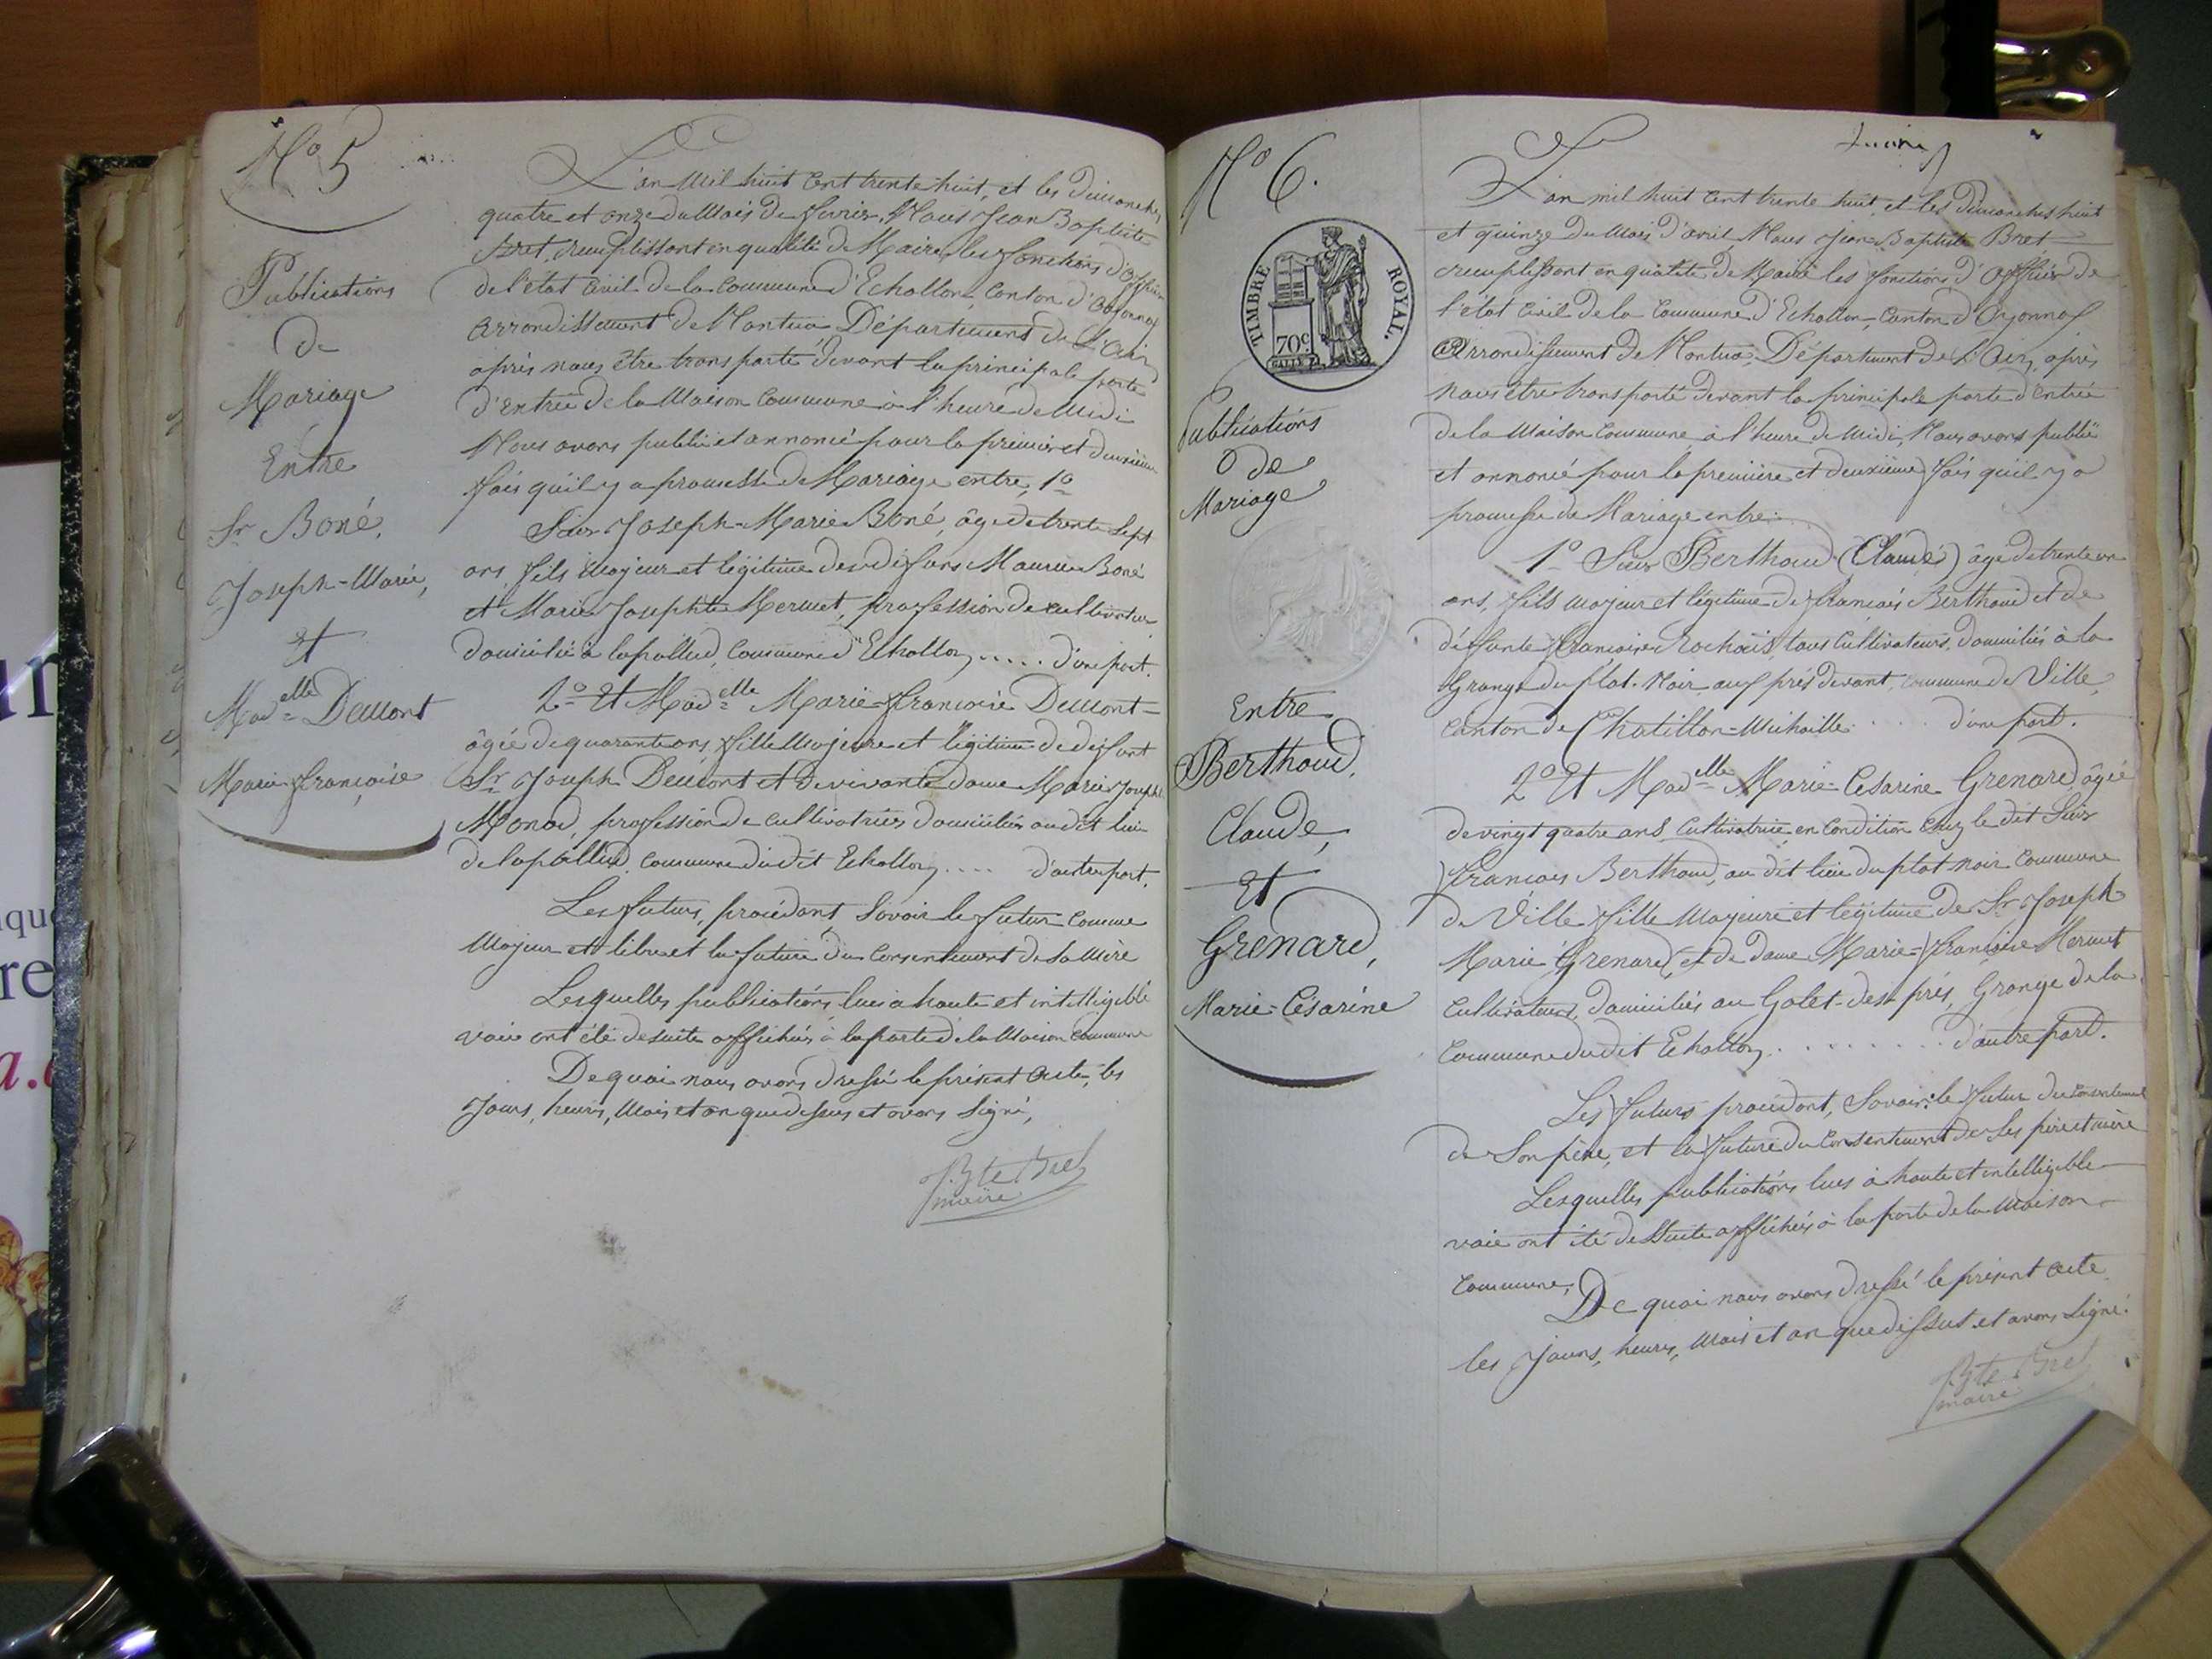 No 5
Publications
de
Mariage
Entre
Sr Boné,
Joseph-Marie,
et
Madelle Demont
Marie françoise
L'an Mil huit Cent trente huit, et les dimanches
quatre et onze du Mois de fevrier, Nous Jean Baptiste
Bret, remplissant en qualité de Maire, les fonctions d'officier
de l'état Civil de la Commune d'Echallon, Canton d'Oyonnax
Arrondissement de Nantua Département de L'Ain
après nous être transporté devant la principale porte
d'Entrée de la Maison Commune à l'heure de Midi
Nous avons publié et annoncé pour la premiere et deuxieme
fois qu'il y a promesse de Mariage entre, 1o
Sieur Joseph-Marie Boné, âgé de trente Sept
ans, fils Majeur et légitime des défunts Maurice Boné
et Marie Josephte Mermet, profession de cultivateur,
domicilié à lapallud, Commune d'Echallon ..... d'une part.
2o Et Madelle Marie-françoise Demont
âgée de quarante ans, fille Majeure et légitime de défunt
Sr Joseph Demont et de vivante dame Marie Josephte
Monod, profession de cultivatrices domiciliés au dit lieu
de lapallud, Commune du dit Echallon .... d'autre part.
Les futurs, procédant, Savoir le futur Comme
Majeur et libre et la future du Consentement de Sa Mère
Lesquelles publications lues à haute et intelligible
voix ont été desuite affichées à la porte de la Maison Commune
De quoi nous avons dressé le présent Acte, les
Jours, heures, Mois et an que dessus et avons Signé,
J. Bte Bret
maire
No 6.
TIMBRE ROYAL.
70c
Publications
de
Mariage
Entre
Berthoud,
Claude,
Et
Grenard,
Marie-Césarine
L'an mil huit Cent trente huit, et les dimanches huit
et quinze du Mois d'avril, Nous Jean-Baptiste Bret
remplissant en qualité de Maire les fonctions d'officier de
l'état Civil de la Commune d'Echallon, Canton d'Oyonnax
Arrondissement de Nantua, Département de L'Ain, après
nous être transporté devant la principale porte d'entrée
de la Maison Commune à l'heure de Midi, Nous avons publié
et annoncé pour la première et deuxième fois qu'il y a
promesse de Mariage entre:
1o Sieur Berthoud (Claude) âgé de trente un
ans, fils majeur et légitime de francois Berthoud et de
défunte francoise Rochaix, tous Cultivateurs, domiciliés à la
Grange du plat-Noir aux prés devant, Commune de Ville,
Canton de Chatillon-Michaille .... d'une part.
2o Et Madelle Marie-Césarine Grenard, âgée
de vingt quatre ans, Cultivatrice, en Condition Chez le dit Sieur
francois Berthoud, au dit lieu du plat noir Commune
de Ville, fille Majeure et légitime de Sr Joseph
Marie Grenard, et de dame Marie-françoise Mermet
Cultivateurs, domiciliés au Golet-des-prés, Grange de la
Commune du dit Echallon ........ d'autre part.
Les futurs procédant, Savoir: le futur du Consentement
de Son père, et la future du Consentement de Ses père et mère
Lesquelles publications lues à haute et intelligible
voix ont été de Suite affichées à la porte de la Maison
Commune,
De quoi nous avons dressé le présent acte
les Jours, heures, Mois et an que dessus et avons Signé.
J. Bte Bret
maire